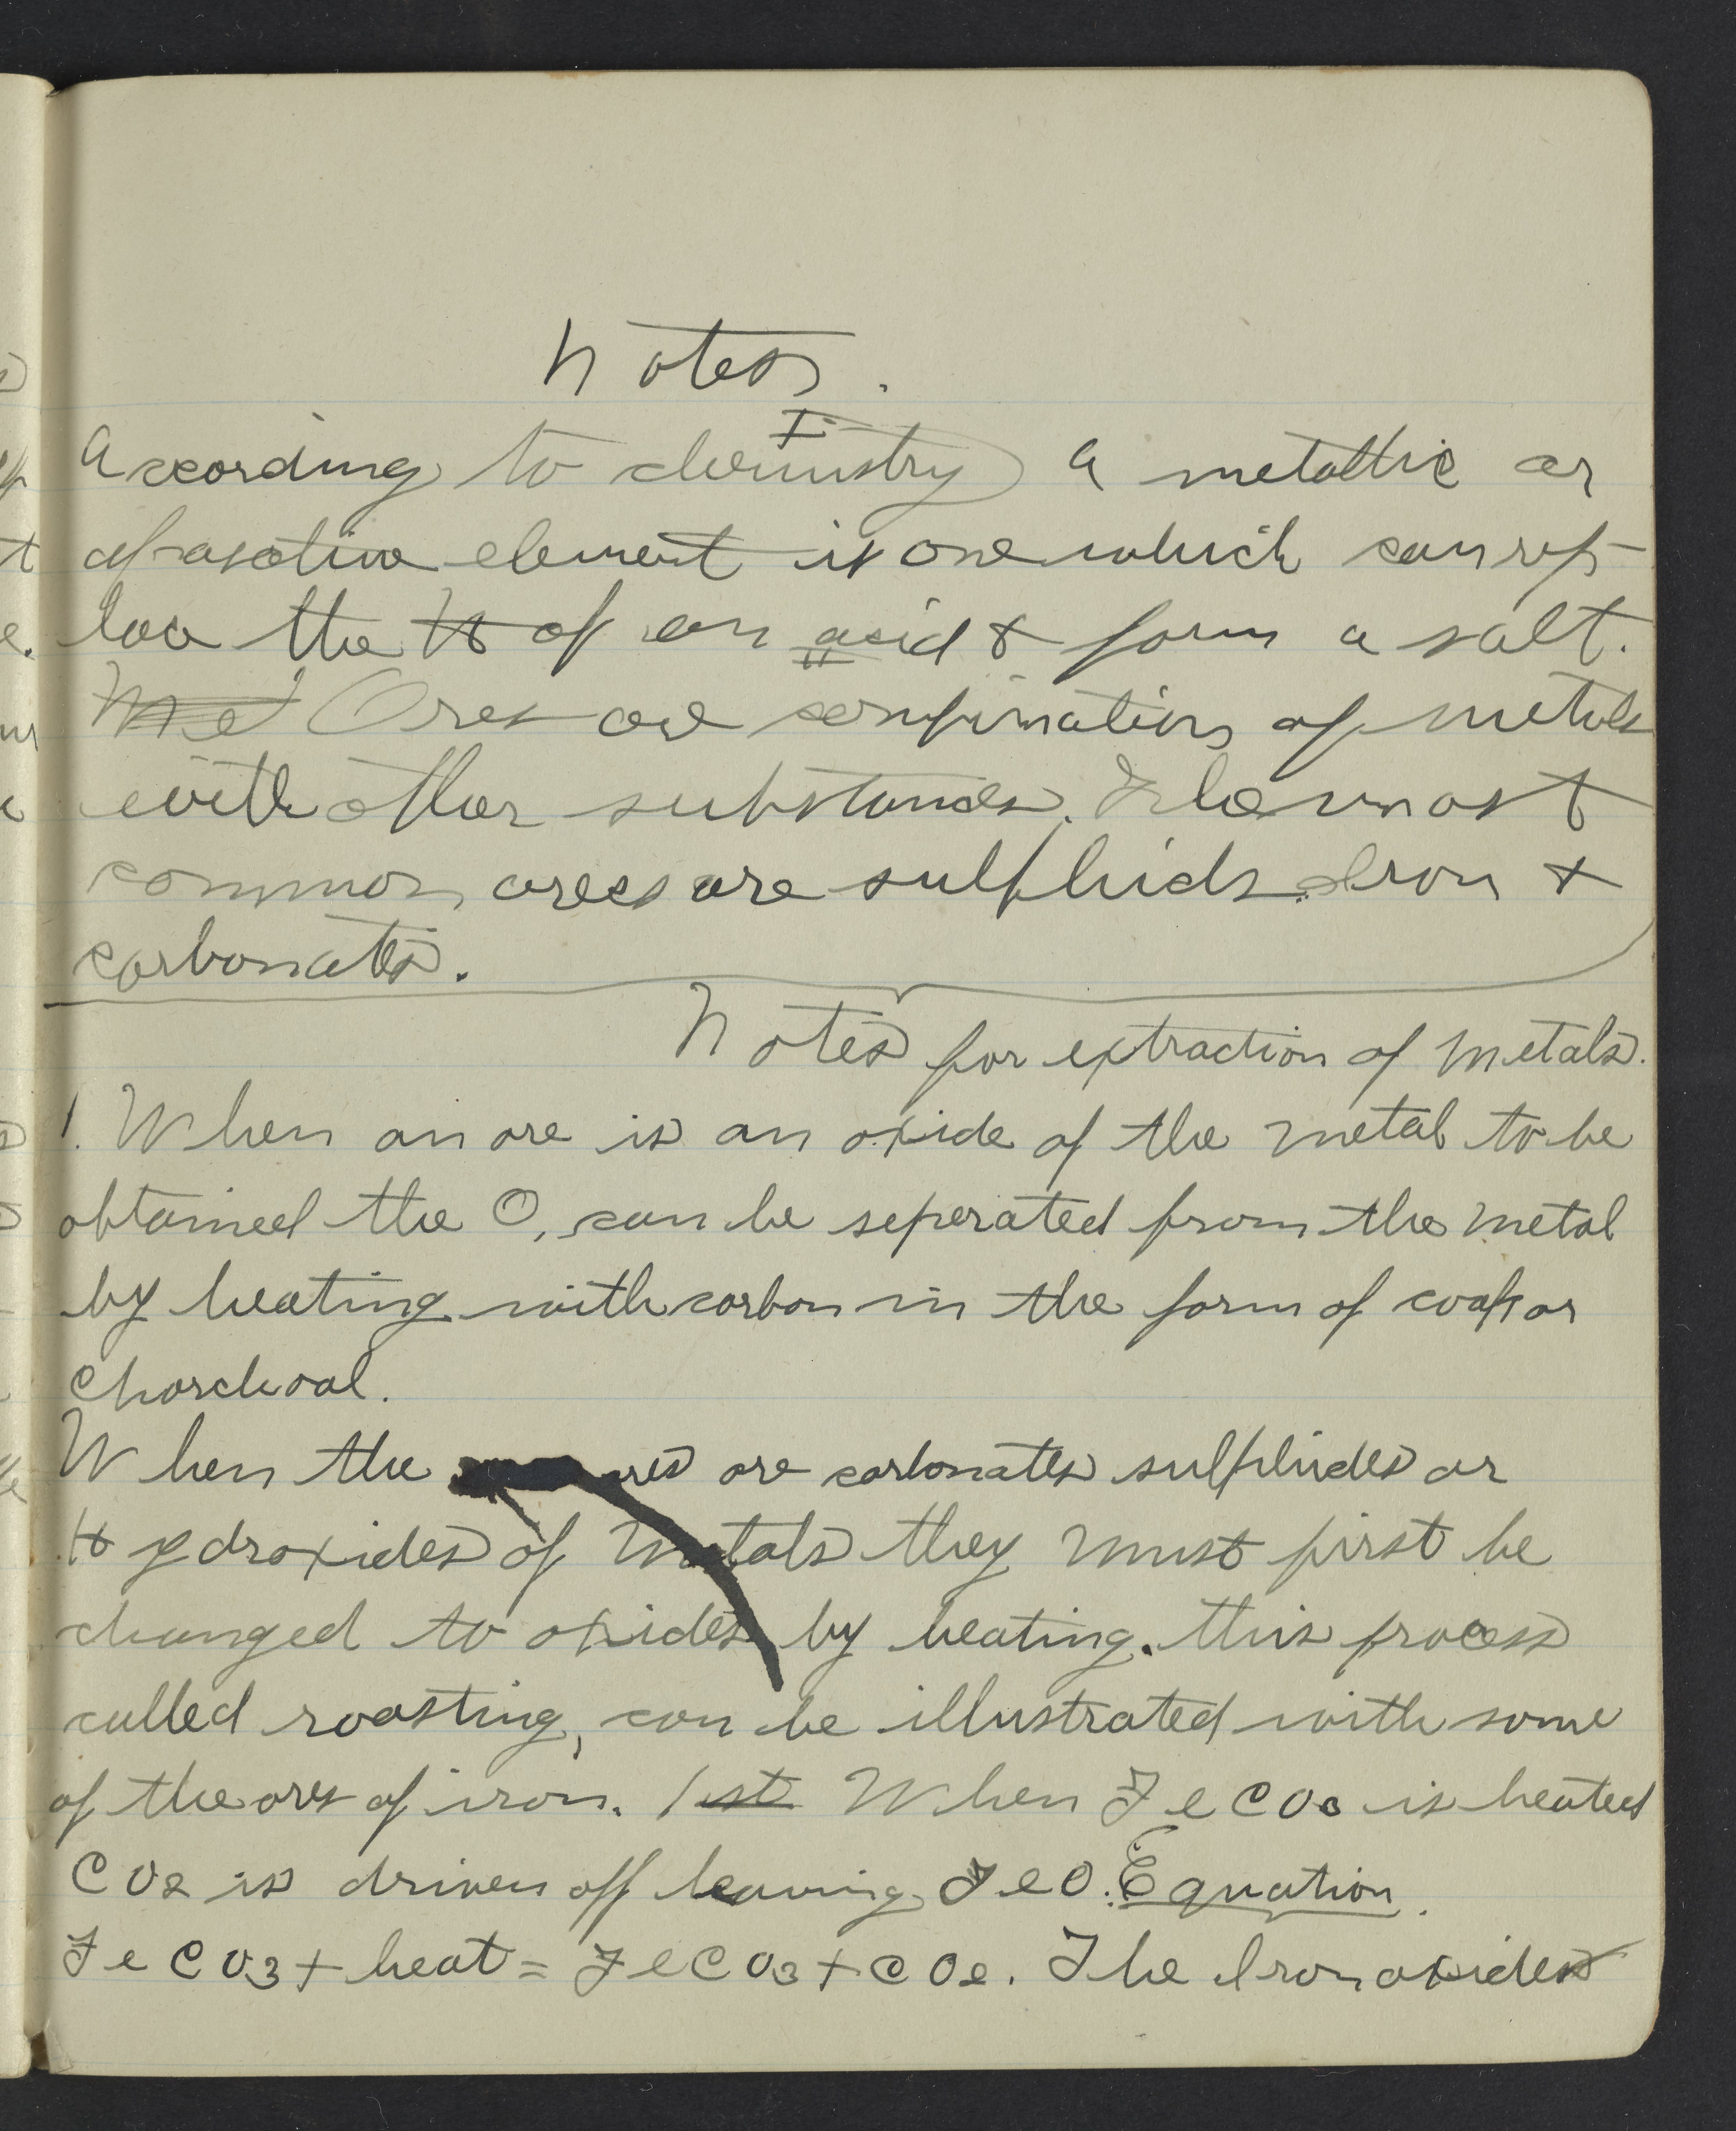 Notes.
I.
According to chemistry a metallic or
of a active element is one which can rep-
lace the H of an acid & form a salt.
II
Met Ores are conpination of metals
with other substances. The most
common ores are sulphids Iron &
carbonates.
Notes for extraction of metals.
1. When an ore is an oxide of the metal to be
obtained the O, can be seperated from the metal
by heating with carbon in the form of or
Charchoal.
When the ores are carbonates sulphides or
Hydroxides of metals they must first be
changed to oxides by heating. this process
called roasting, can be illustrated with some
of the ores of iron. 1st When FeCO3 is heated
CO2 is driven off leaving FeO. Equation.
FeCO3 + heat = FeCO3 + CO2. The Iron oxides